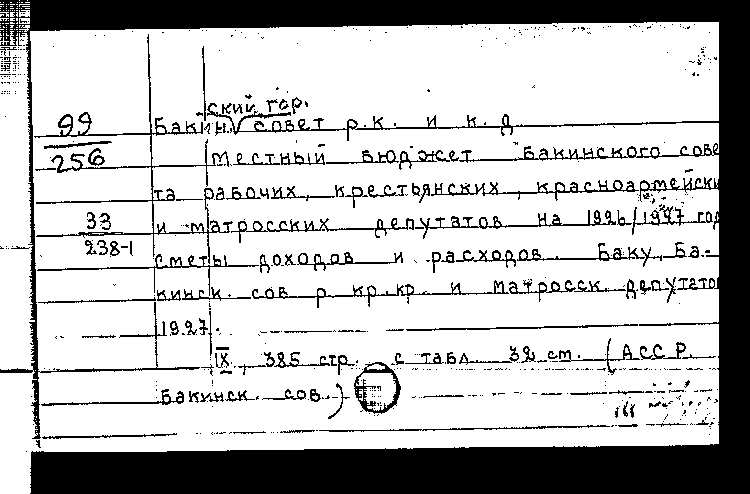 ский гор.
99 Бакин совет р.к. и к. д
256 Местный бюджет Бакинского сове
та рабочих, крестьянских, красноармейски
33 и матросских депутатов на 1926/1927 год
238-1 сметы доходов и расходов. Баку, Ба-
кинск. сов р. кр. кр. и матросск. депутато
1927.
IX, 385 стр. с табл. 32 см. (АССР.
Бакинск. сов.)